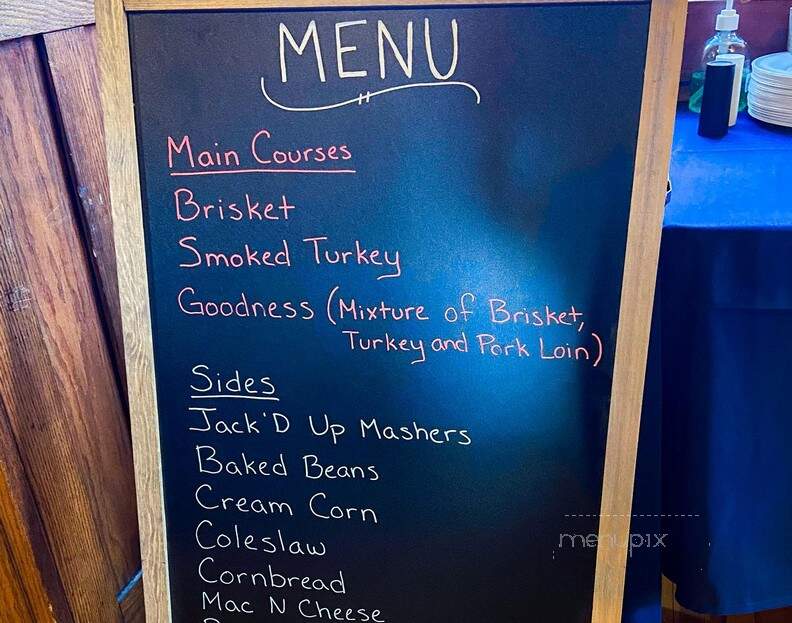 MENU
Main Courses
Brisket
Smoked Turkey
Goodness (Mixture of Brisket,
Turkey and Pork Loin)
Sides
Jack'D Up Mashers
Baked Beans
Cream Corn
Coleslaw
Cornbread
Mac N Cheese
menupix